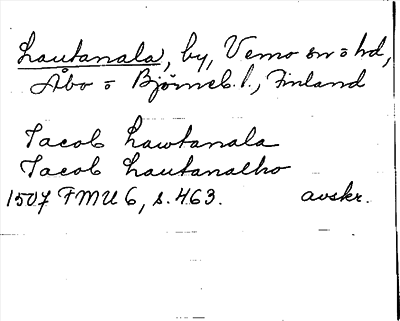 Lautanala, by, Vemo sn o hd,
Åbo o Björneb. l., Finland
Jacob Lawtanala
Jacob Lautanalho
1507 FMU 6, s. 463. avskr.